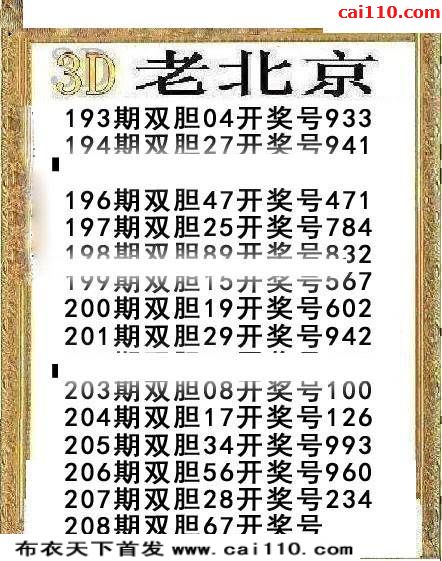 cai110.com
3D 老北京
193期双胆04开奖号933
194期双胆27开奖号941
196期双胆47开奖号471
197期双胆25开奖号784
198期双胆89开奖号832
199期双胆15开奖号567
200期双胆19开奖号602
201期双胆29开奖号942
203期双胆08开奖号100
204期双胆17开奖号126
205期双胆34开奖号993
206期双胆56开奖号960
207期双胆28开奖号234
208期双胆67开奖号
布衣天下首发 www.cai110.com